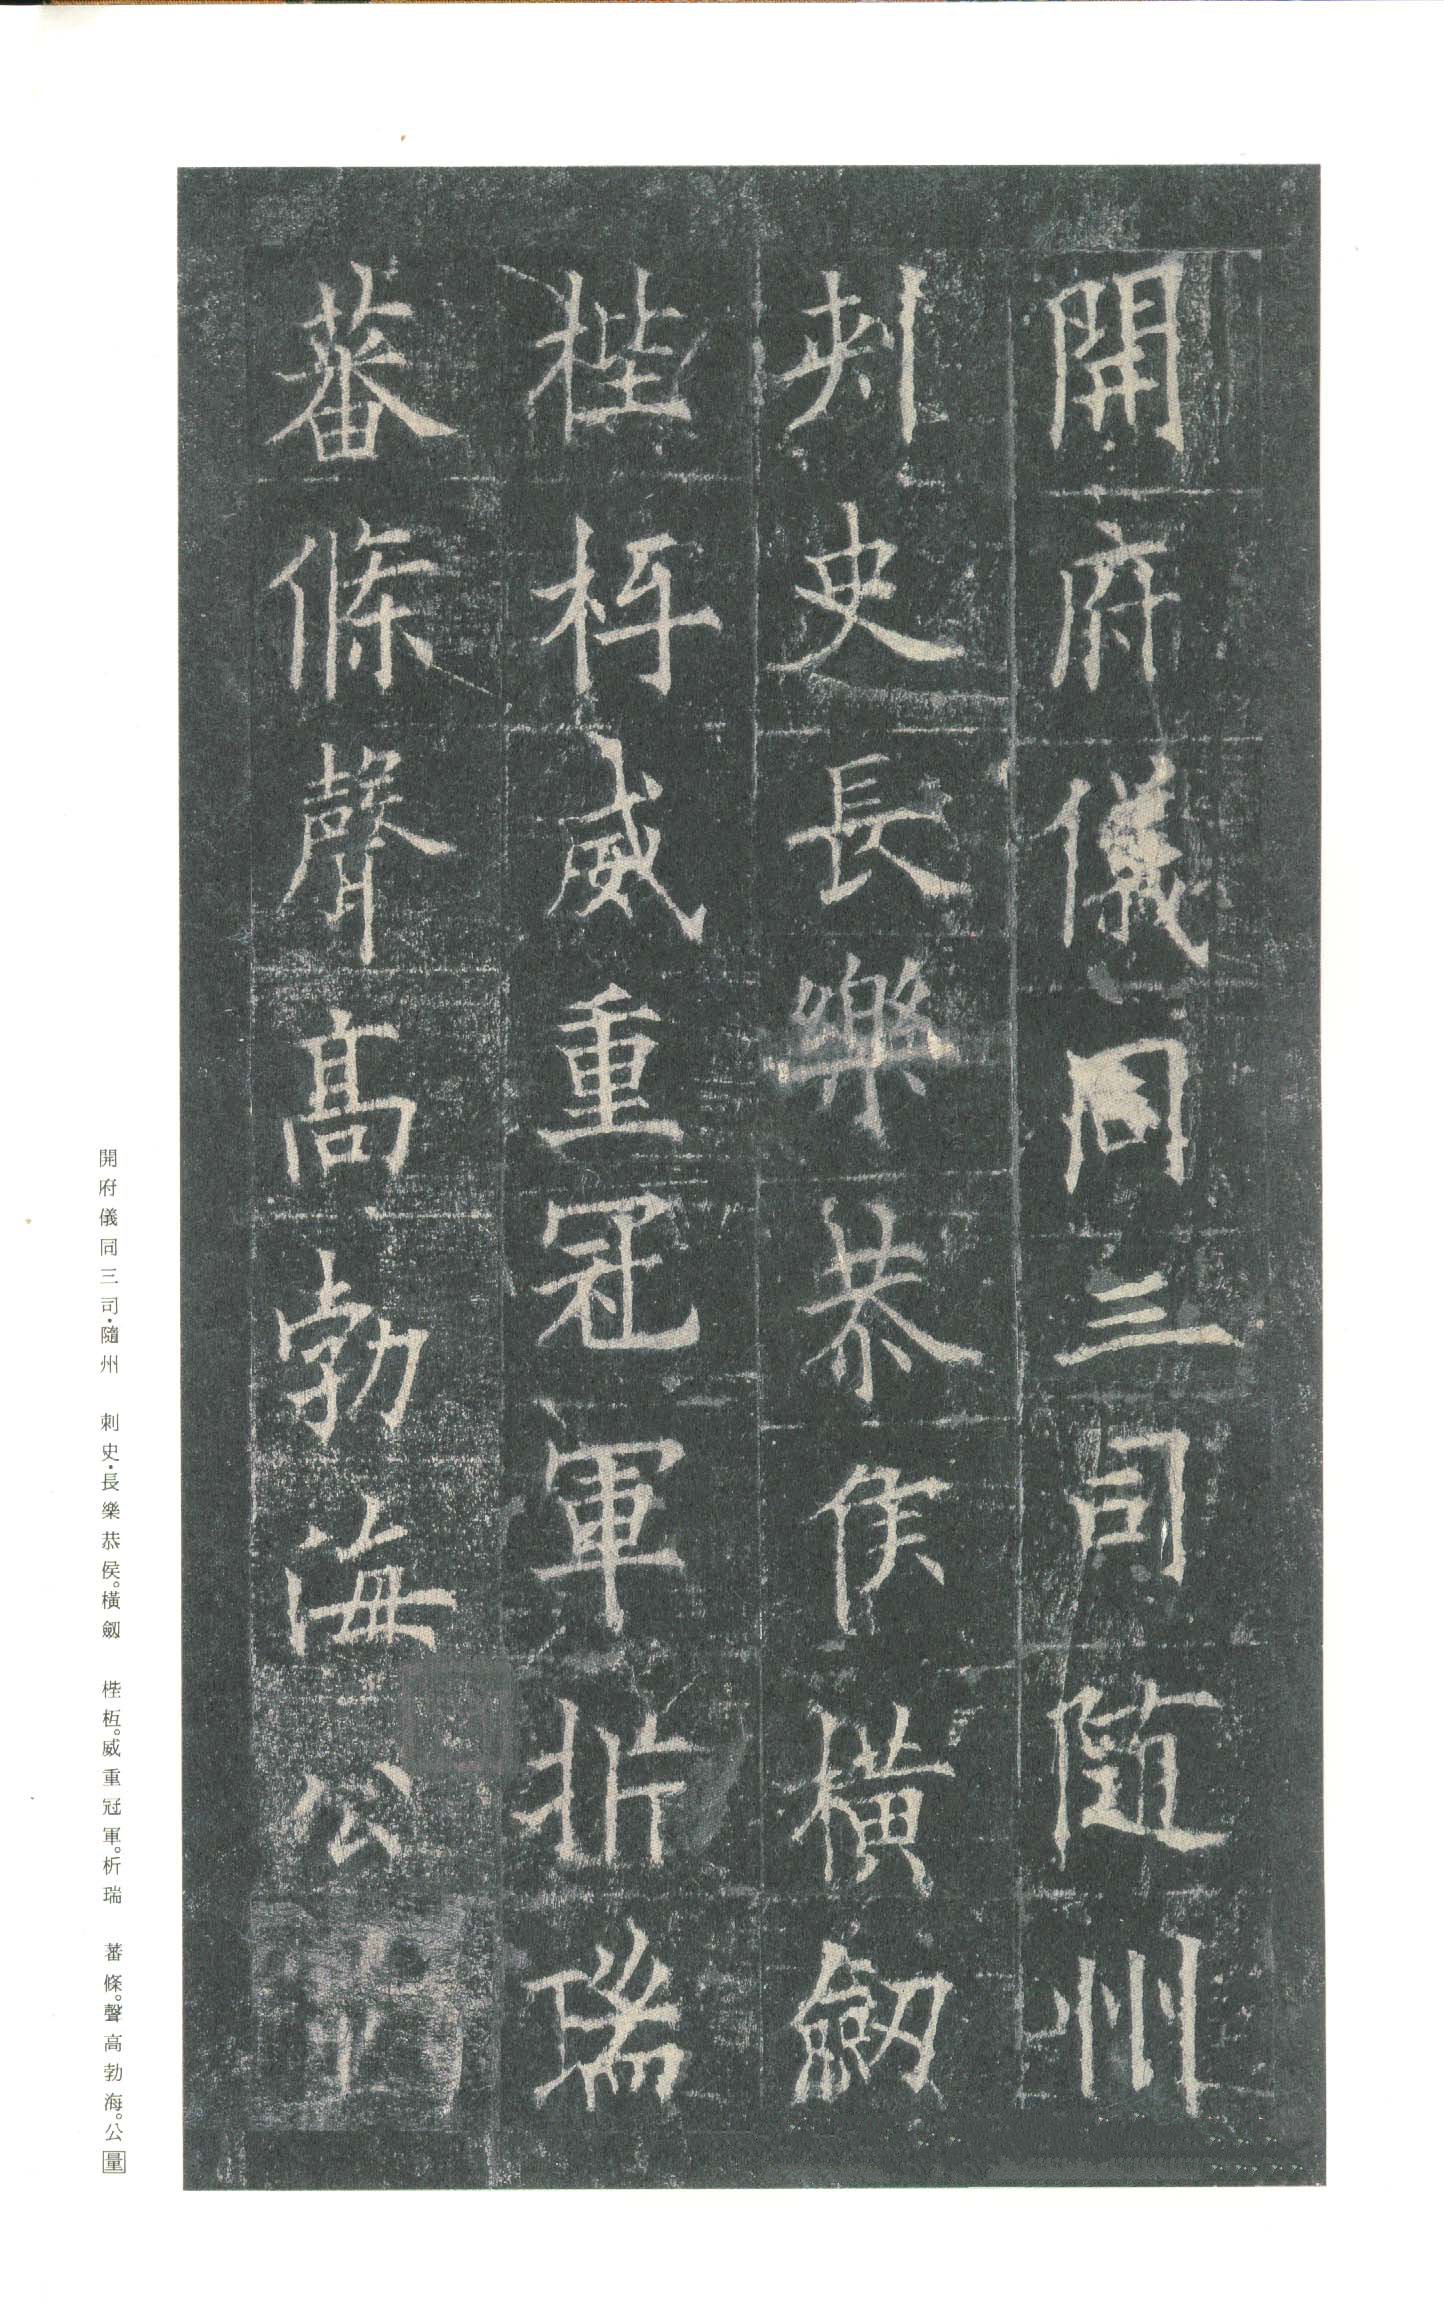 開府儀同三司隨州
刺史長樂恭侯橫劒
梐枑威重冠軍析瑞
蕃條聲高勃海公
開府儀同三司·隨州　刺史·長樂恭侯。橫劒　梐枑。威重冠軍。析瑞　蕃條。聲高勃海。公量